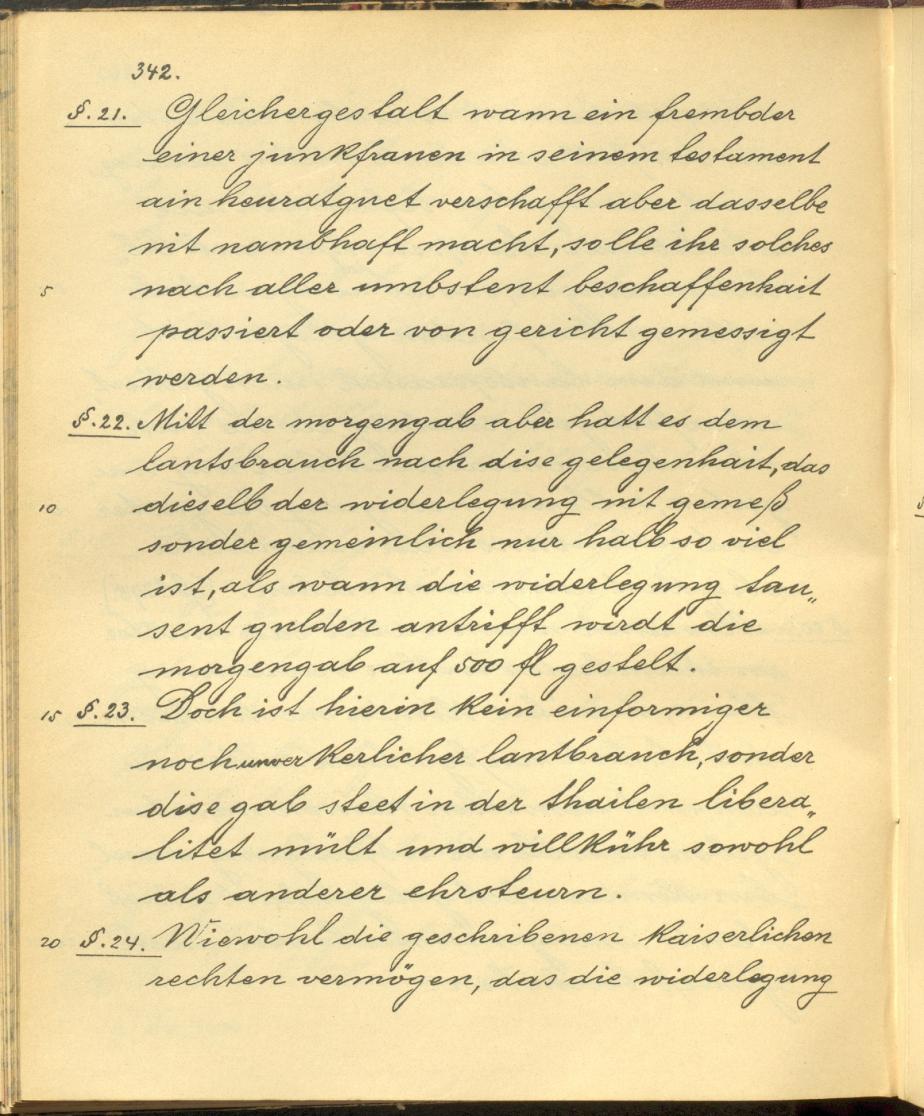 342.
§.21. Gleichergestalt wann ein frembder
einer junkfrauen in seinem testament
ain heuratguet verschafft aber dasselbe
nit nambhaft macht, solle ihr solches
5 nach aller umbstent beschaffenhait
passiert oder von gericht gemessigt
werden.
§.22. Mitt der morgengab aber hatt es dem
lantsbrauch nach dise gelegenhait, das
10 dieselb der widerlegung nit gemeß
sonder gemeinlich nur halb so viel
ist, als wann die widerlegung tau„
sent gulden antrifft wirdt die
morgengab auf 500 fl gestelt.
15 §.23. Doch ist hierin kein einformiger
noch unverkerlicher lantbrauch, sonder
dise gab steet in der thailen libera„
litet mült und willkühr sowohl
als anderer ehrsteurn.
20 §.24. Wiewohl die geschribenen kaiserlichen
rechten vermögen, das die widerlegung